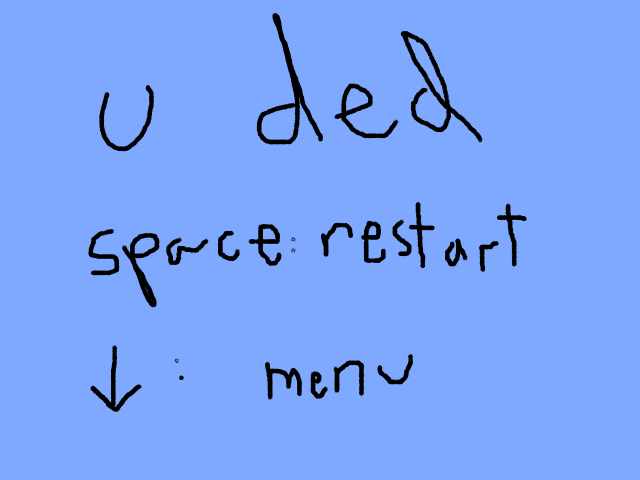 u ded
space: restart
↓: menu